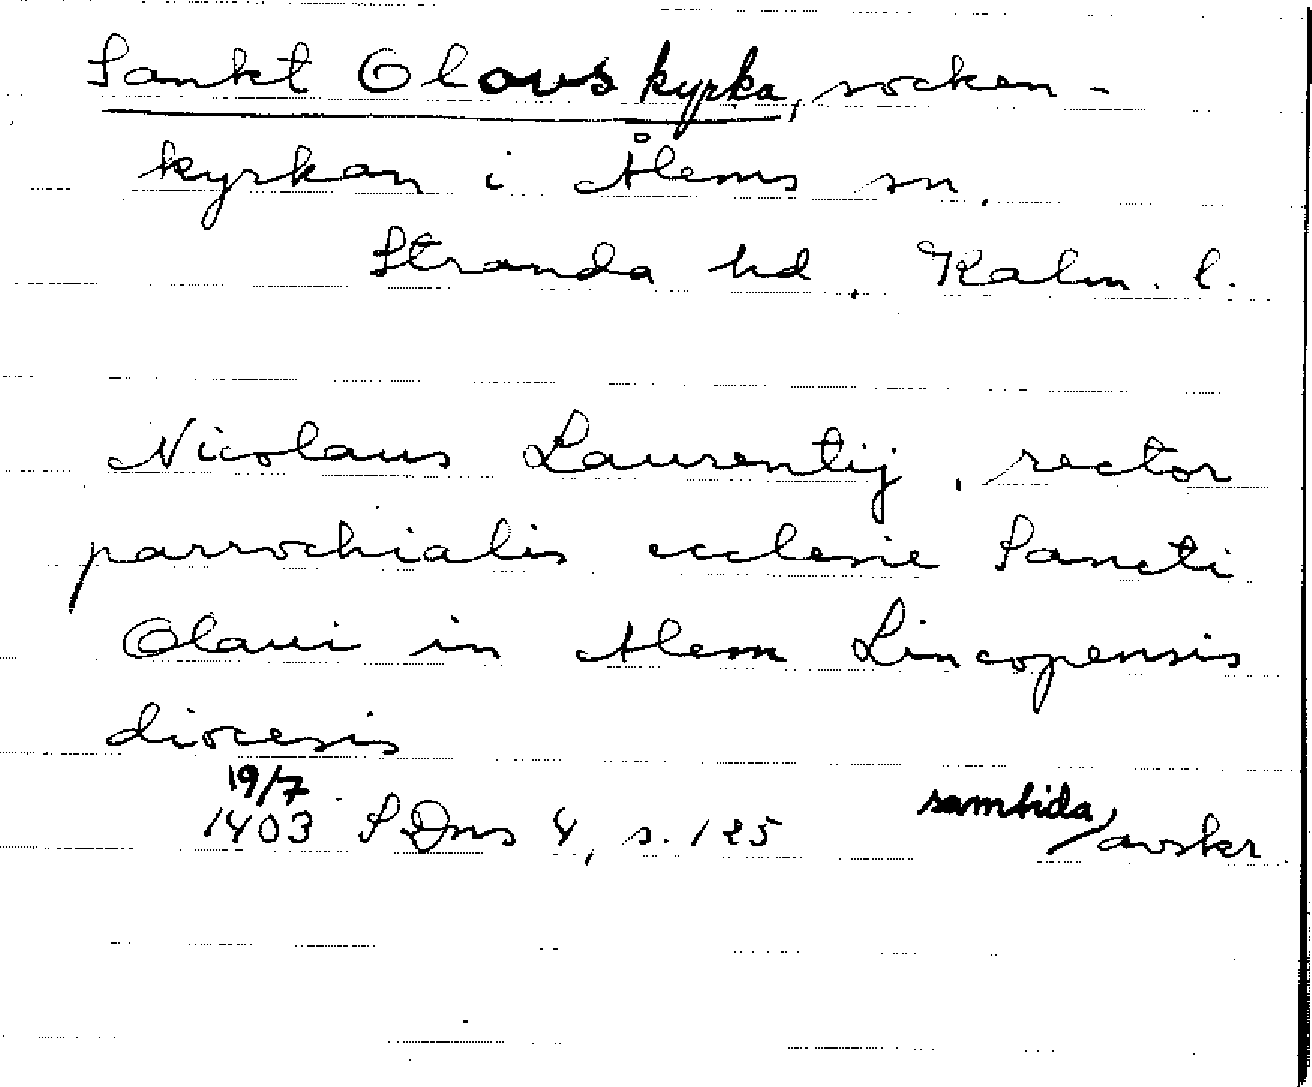 Sankt Olovs kyrka, socken-
kyrkan i Ålems sn.
Stranda hd, Kalm. l.
Nicolaus Laurentij, rector
parrochialis ecclesie Sancti
Olaui in Alem Lincopensis
diocesis
19/7
1403 SDns 4, s. 125 samtida/avskr